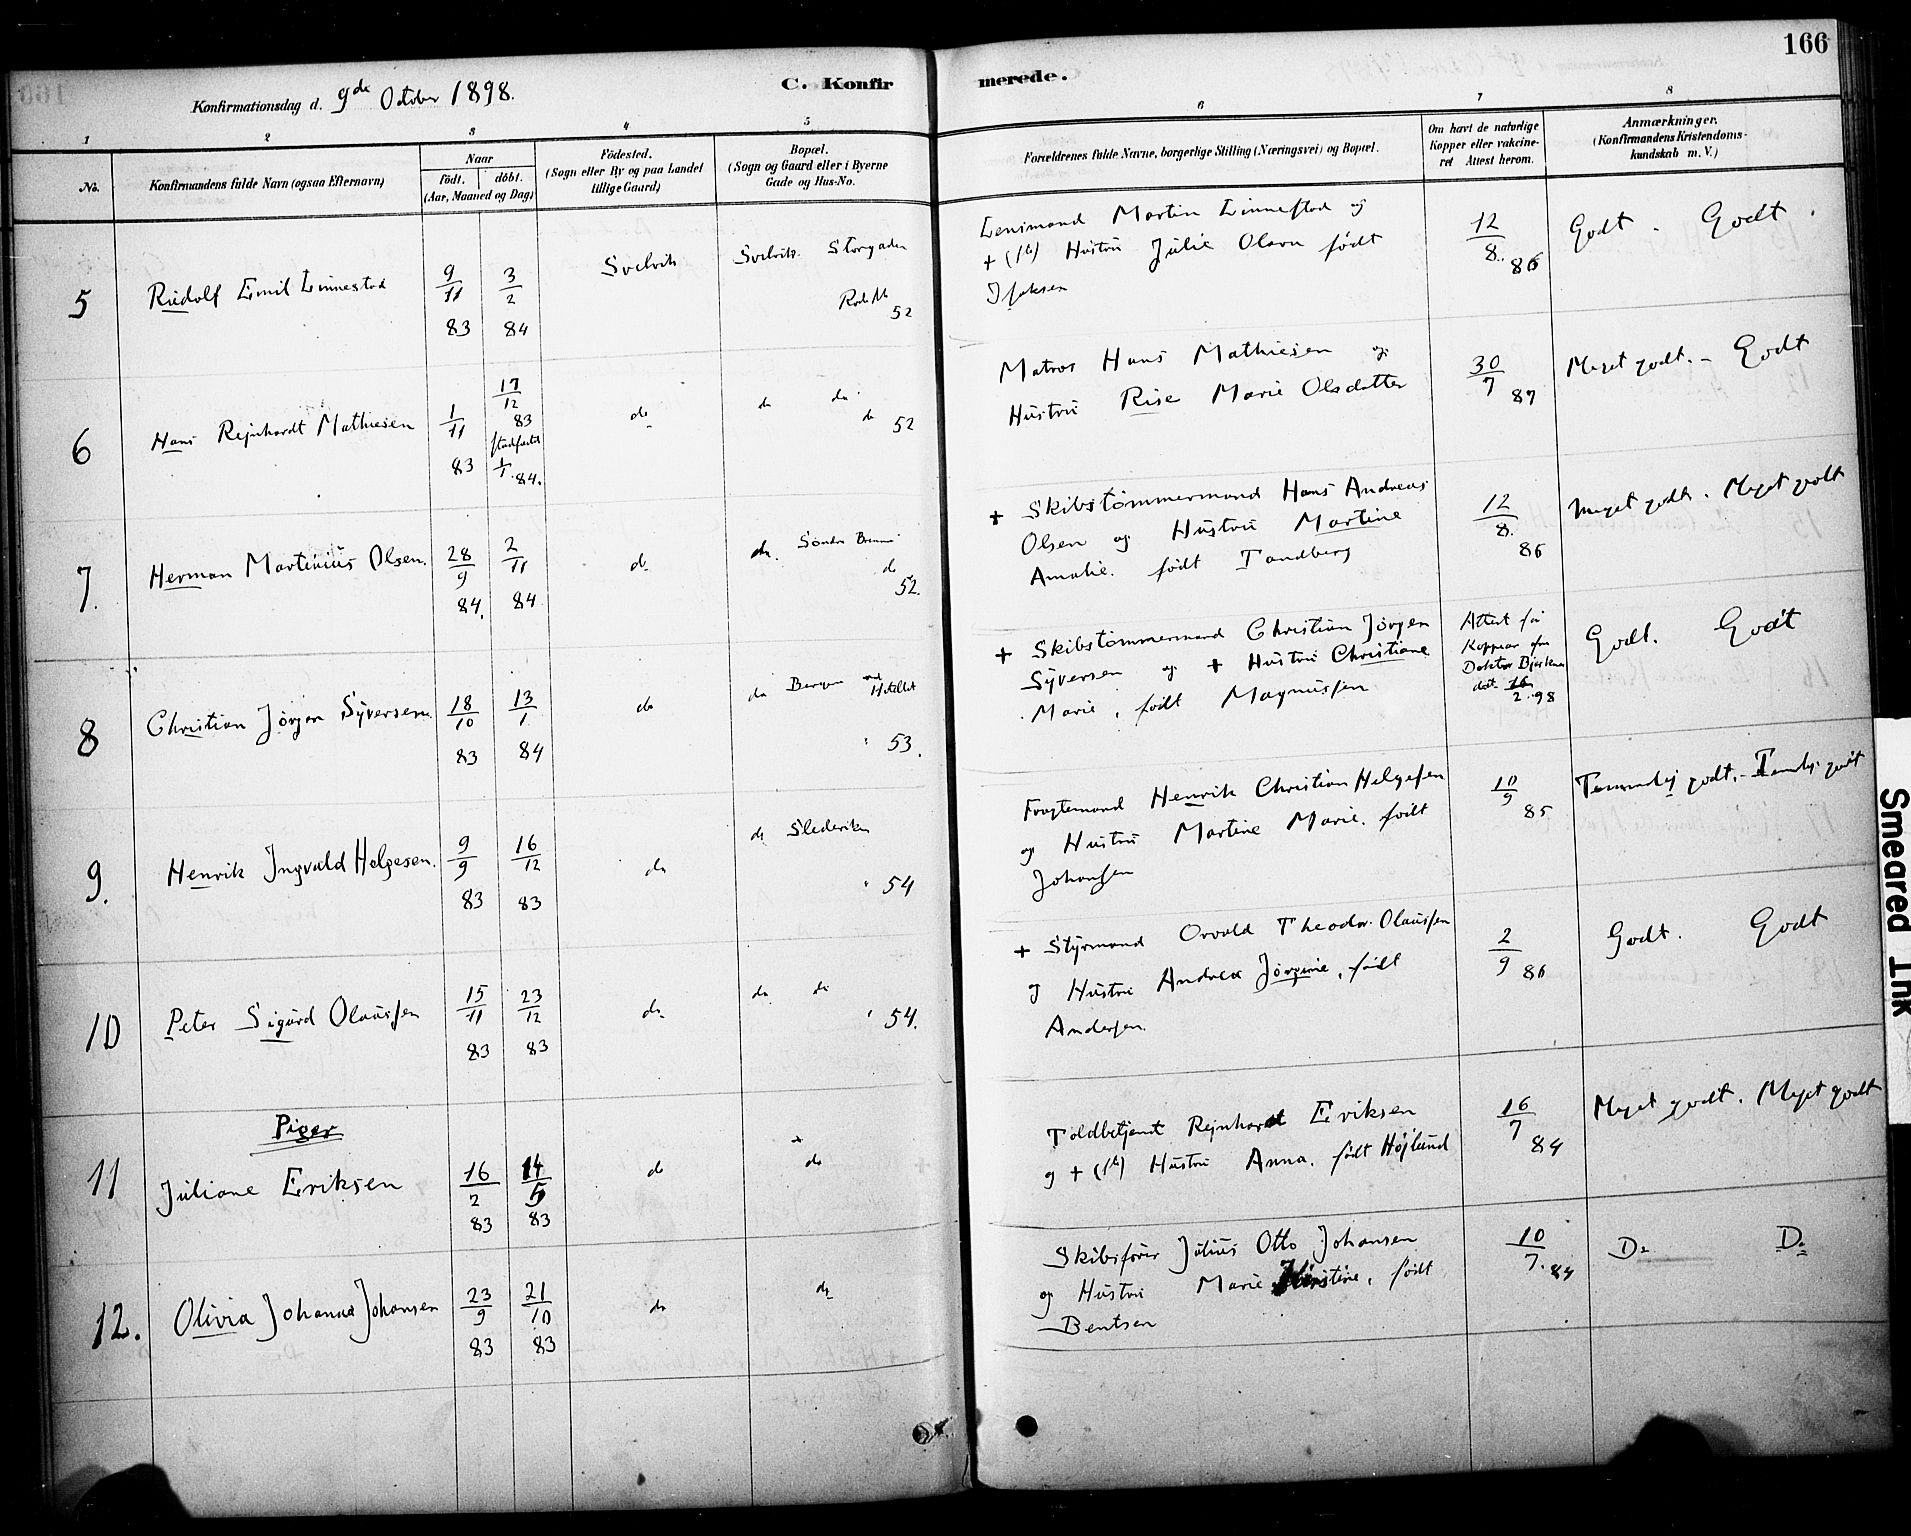 166
Konfirmationsdag d. 9de October 1898.
C. Konfir
merede.
1 2 3 4 5 6 7 8
No.
Konfirmandens fulde Navn (ogsaa Efternavn)
Naar
födt. döbt.
(Aar, Maaned og Dag)
Födested.
(Sogn eller By og paa Landet
tillige Gaard)
Bopæl.
(Sogn og Gaard eller i Byerne
Gade og Hus-No.
Forældrenes fulde Navne, borgerlige Stilling (Næringsvei) og Bopæl.
Om havt de naturlige
Kopper eller vakcine-
ret Attest herom.
Anmærkninger.
(Konfirmandens Kristendoms-
kundskab m. V.)
5
Rudolf Emil Linnestad
9/11 83
3/2 84
Svelvik
Svelvik Storgaden
52
Lensmand Martin Linnestad og
+ (1st) Hustru Julie Olava født
Isaksen
12/8. 86
Godt. Godt.
6
Hans Rejnhardt Mathiesen
1/11 83
17/12 83
stadfæstet
1/1 84.
do
do do
do 52
Matros Hans Mathiesen og
Hustru Rise Marie Olsdatter
30/7 87
Meget godt. - Godt
7.
Herman Martinius Olsen.
28/9 84.
2/11 84
do
do. Søndre
do 52.
+ Skibstømmermand Hans Andreas
Olsen og Hustru Martine
Amalie. født Tandberg
12/8. 86
Meget godt. Meget godt
8
Christian Jørgen Syversen.
18/10 83
13/1 84
do
do Bergen ved Hotellet
" 53.
+ Skibstømmermand Christian Jørgen
Syversen og + Hustru Christiane
Marie, født Magnussen
Attest for
Kopper fra
Doktor
dat. 16/2.98
Godt. Godt
9.
Henrik Ingvald Helgesen.
9/9 83
16/12 83
do
do Slederiken
" 54
Fragtemand Henrik Christian Helgesen
og Hustru Martine Marie. født
Johansen
10/9 85
Temmelig godt. - Temlig godt
10
Peter Sigurd Olaussen
15/11 83
23/12 83
do
do do
" 54.
+ Styrmand Orvald Theodor Olaussen
og Hustru Andrea Jørgine, født
Andersen.
2/9 86
Godt. Godt
Piger
11
Juliane Eriksen
16/2 83
14/5 83
do
+
do
Toldbetjent Rejnhardt Eriksen
og + (1st) Hustru Anna. født Højlund
16/7 84
Meget godt. Meget godt
12.
Olivia Johanna Johansen
23/9 83
21/10 83
do
do
Skibsfører Julius Otto Johansen
og Hustru Marie Kirstine, født
Bentsen
10/7. 84
Do Do
Smeared Ink